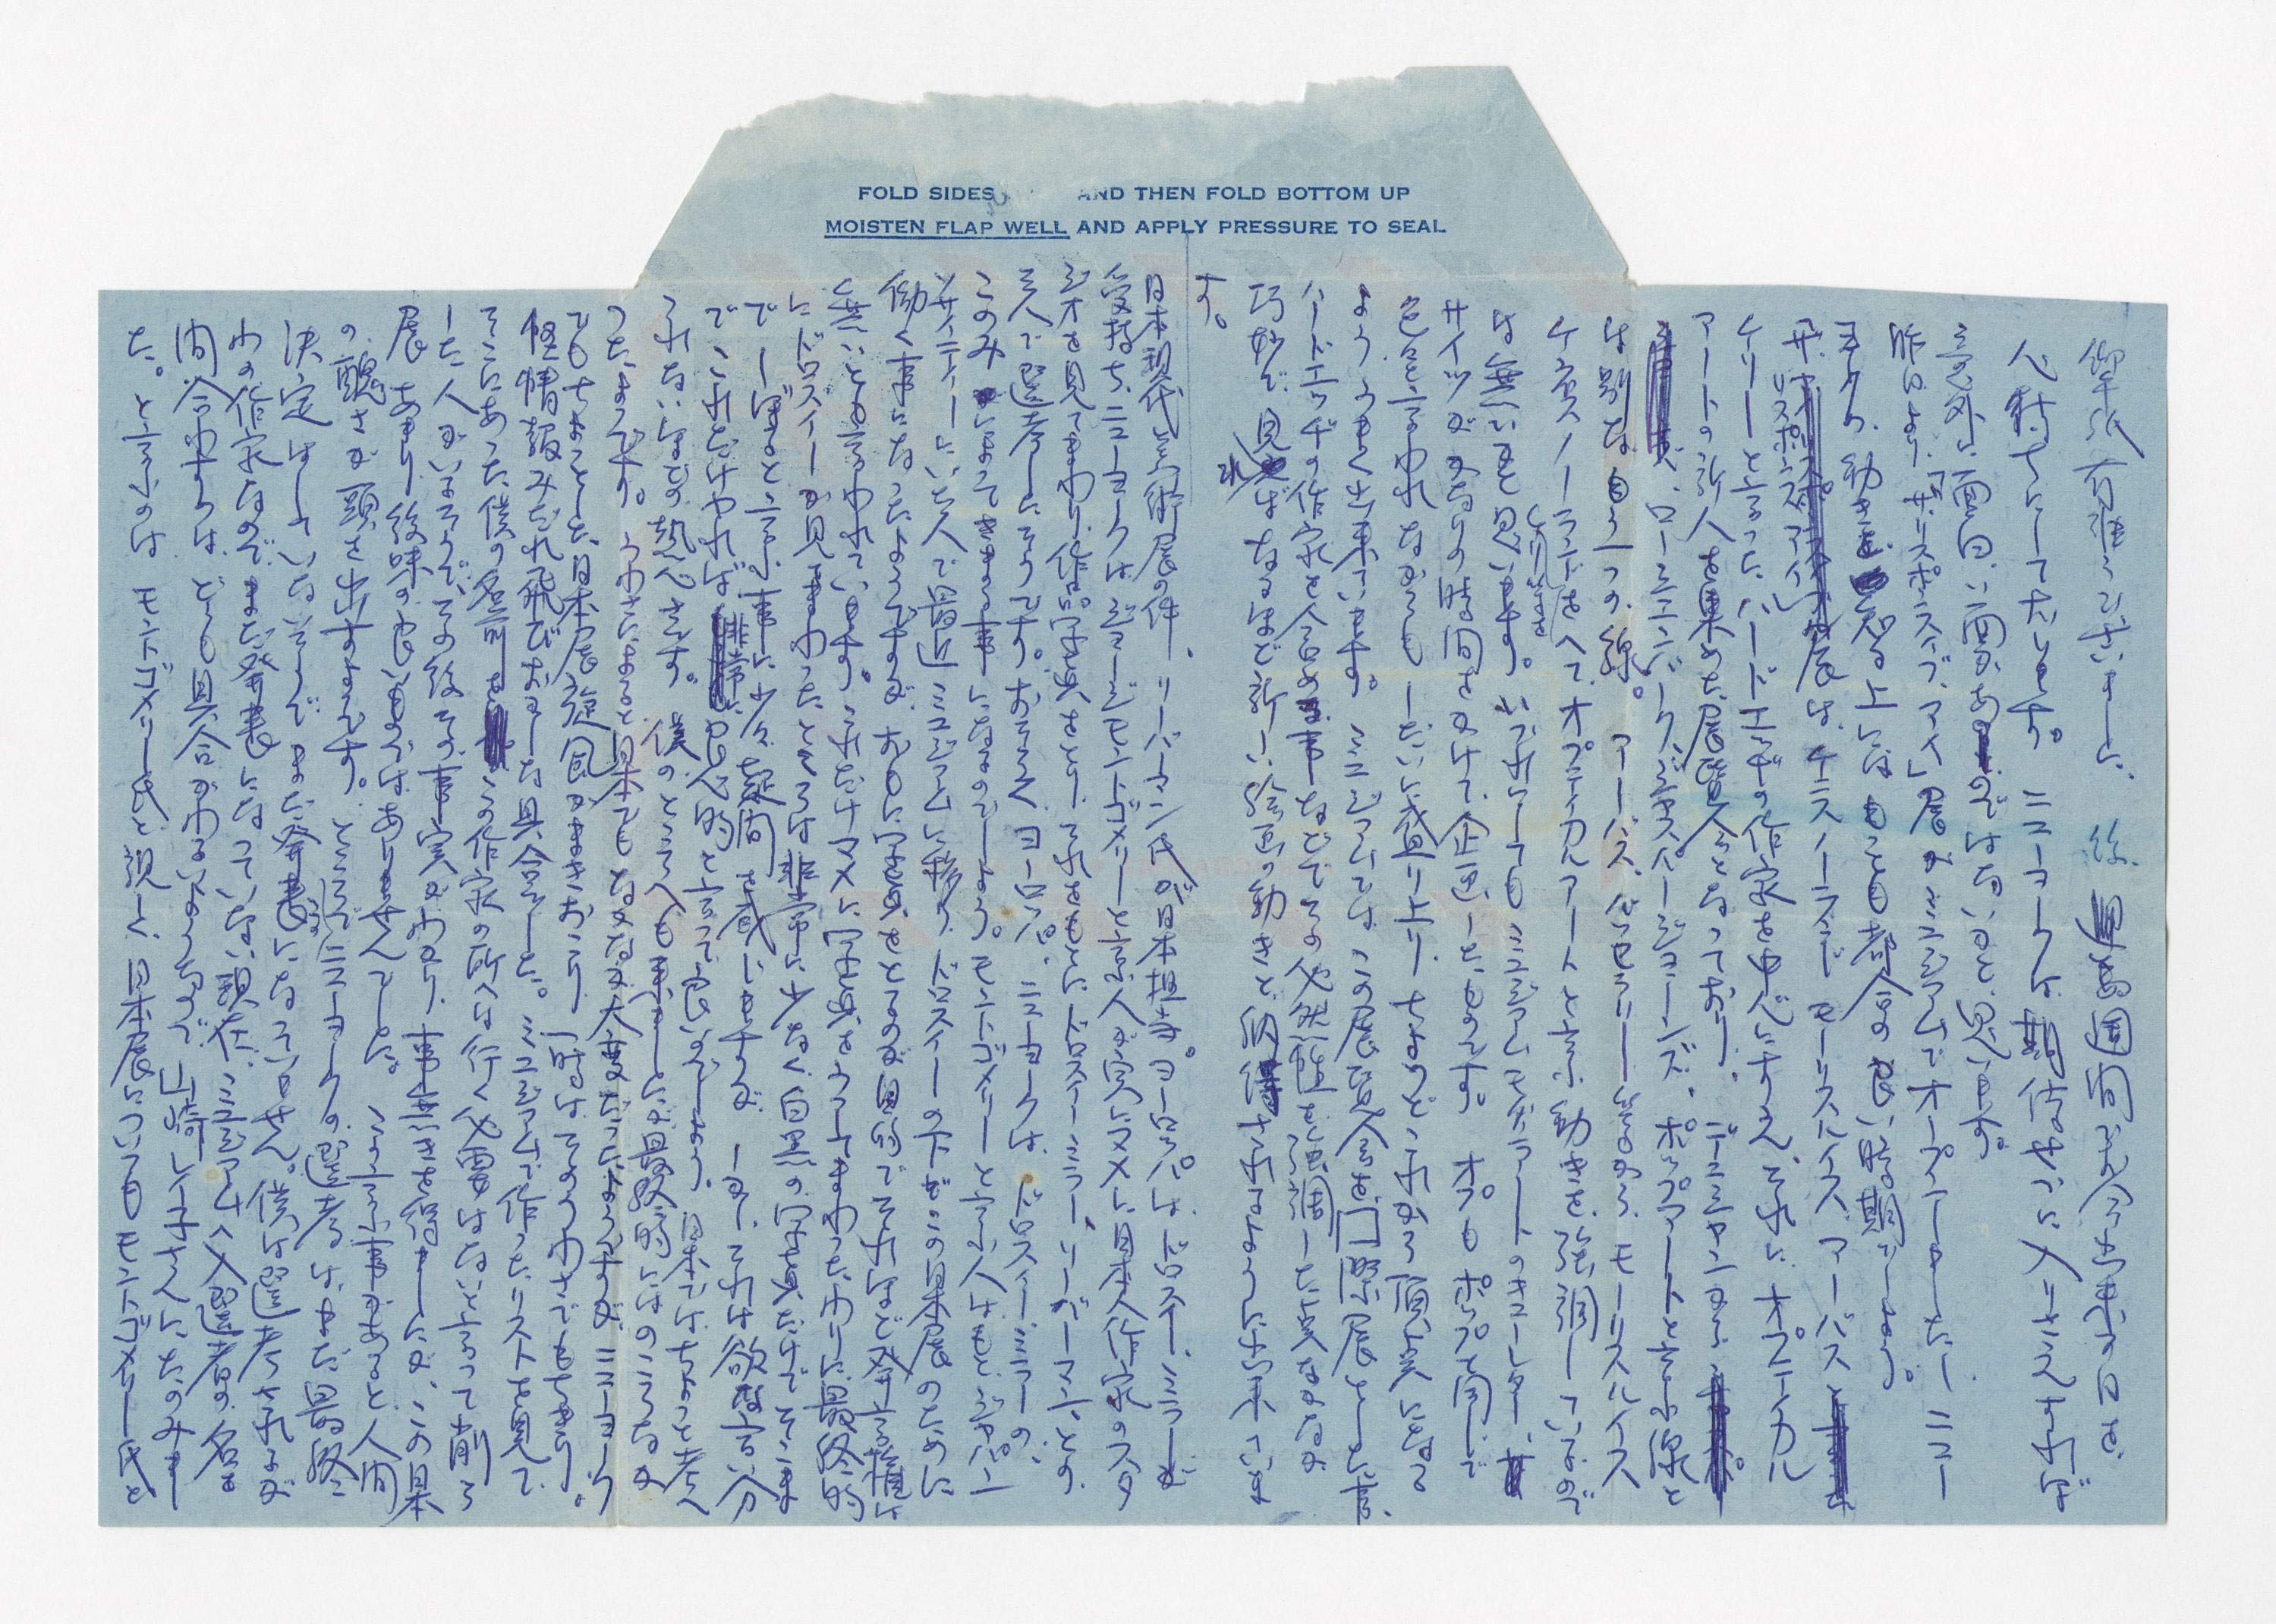 FOLD SIDES AND THEN FOLD BOTTOM UP
MOISTEN FLAP WELL AND APPLY PRESSURE TO SEAL
御手紙有難うございました。
心待ちにしております。ニューヨークは
意外に面白い面があるのではないかと思います。
昨日より「ザ・リスポンスィブ・アイ」展がミュージアムでオープンしました。ニュー
ヨークの動きを知る上にはもっとも都合の良い時期でしょう。
ザ・リスポンスィブ・アイ展はケニス・ノーランド モーリス・ルイス アーバス
ケリーと言ったハードエッヂの作家を中心にすえ、それにオプティカル
アートの新人を集めた展覧会となっており、
ローシェンバーグ、ジャスパー・ジョーンズ、ポップアートと言う線と
は別なもう一つの線。アーバス、ケリー等から、モーリス・ルイス
ケネス・ノーランドをへて、オプティカルアートと言う動きを強調しているので
は無いかと思います。いづれにしてもミュージアム・モダンアートのキューレター、
サイツがかなりの時間をかけて企画したものです。オプもポップと同じで
色々言われながらもしだいに盛り上り、ちょうどこれから確実になる
よううまく出来ています。ミュージアムではこの展覧会は国際展とした事、
ハードエッヂの作家を含めた事などでその必然性を強調した様なかなか
巧妙で、見ればなるほど新しい絵画の動きと
す。
日本現代美術展の件、リーバマン氏が日本担当。ヨーロッパはドロスィー・ミラーが
受持ち、ニューヨークはジョージ・モントゴメリーと言う人が実にマメに日本人作家のスタ
ジオを見てまわり作品写真をとり、それをもとにドロスィー・ミラー、リーバーマンとの
三人で選考したそうです。おそらく、ヨーロッパ、ニューヨークは、ドロスィー・ミラーの、
このみによってきまる事になるのでしょう。モントゴメリーと言う人はもとジャパン
ソサイティーにいた人で最近ミュージアムに移り、ドロスィーの下でこの日本展のために
働く事になったようですが、おもに写真をとるのが目的でそれほど発言権は
無いとも言われています。これだけマメに写真をとってまわったわりに最終的
にドロスィーが見てまわったところは非常に少なく白黒の写真だけでそこま
でしぼると言う事に少々疑問を感じますが、しかし、それは欲な言い分
でこれだけやれば良心的と言って良いでしょう。日本ではちょっと考え
られないほどの熱心さです。僕のところへも来ましたが最終的にはのこらなか
ったようです。うわさによると日本でもなかなか大変だったようですが、ニューヨーク
でもちょっとした日本展旋風がまきおこり、一時はそのうわさでもちきり。
怪情報みだれ飛びおかしな具合でした。ミュージアムで作ったリストを見て
そこにあった僕の名前をこの作家の所へは行く必要はないと言って削ら
した人がいるそうで、その後その事実がわかり、事無きを得ましたが、この日本
展あまり後味の良いものではありませんでした。こういう事があると人間
の醜さが頭を出すようです。ところで、ニューヨークの選考はまだ最終
決定はしていないそうでまだ発表になっていません。僕は選考された
わの作家なのでまだ発表になっていない現在、ミュージアムへ入選者の名を
問合わすのはどうも具合がわるいようなので、レイ子さんにたのみまし
た。と言うのはモントゴメリー氏と親しく、日本展についてもモントゴメリー氏と